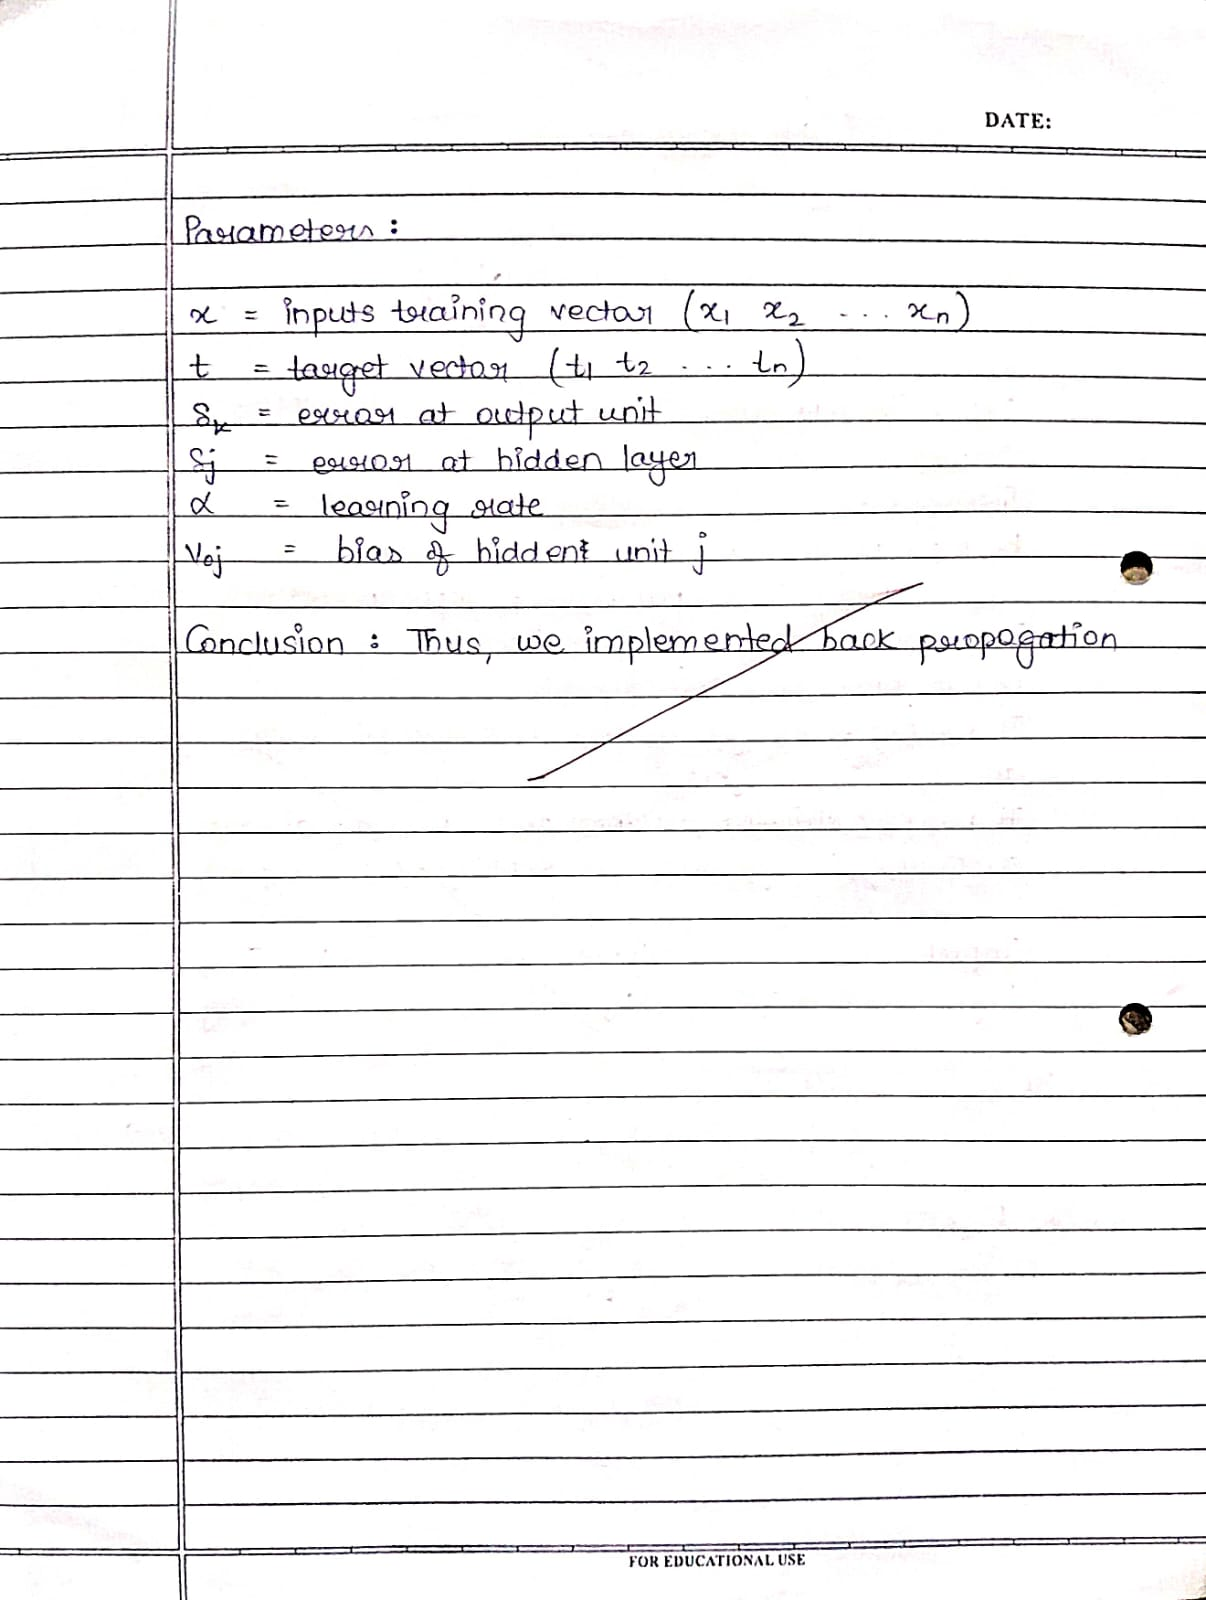 DATE:
Parameters :
x = inputs training vector (x₁ x₂ ... xₙ)
t = target vector (t₁ t₂ ... tₙ)
δₖ = error at output unit
δj = error at hidden layer
α = learning rate
V₀j = bias of hidden unit j
Conclusion : Thus, we implemented back propogation
FOR EDUCATIONAL USE